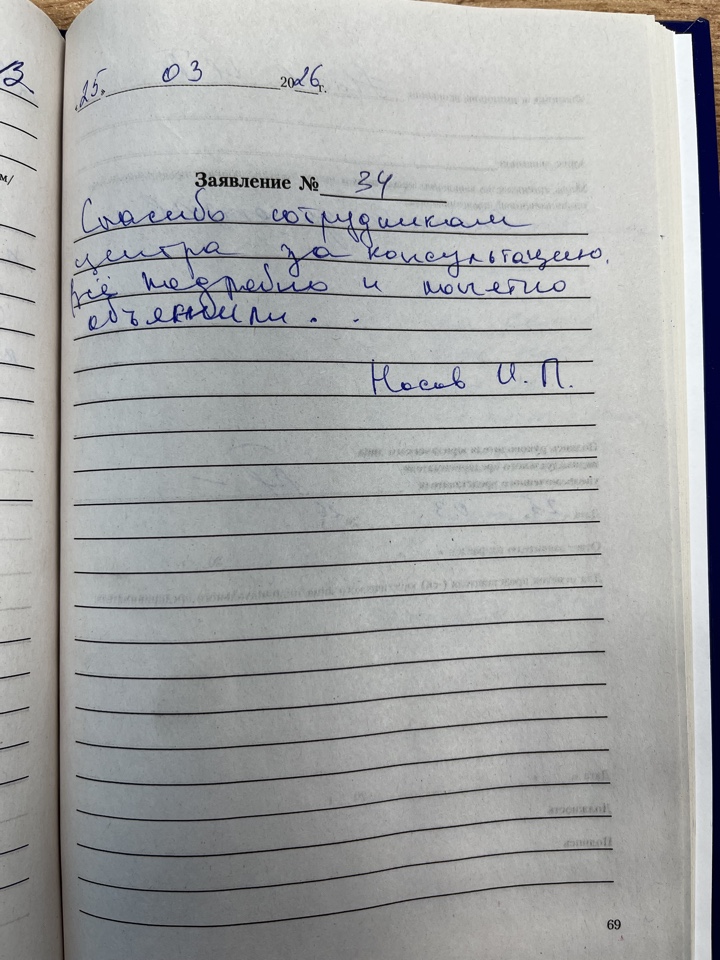 «25» 03 2026 г.
Заявление № 34
Спасибо сотрудникам
центра за консультацию.
Всё подробно и понятно
объяснили. .
Носов И. П.
69